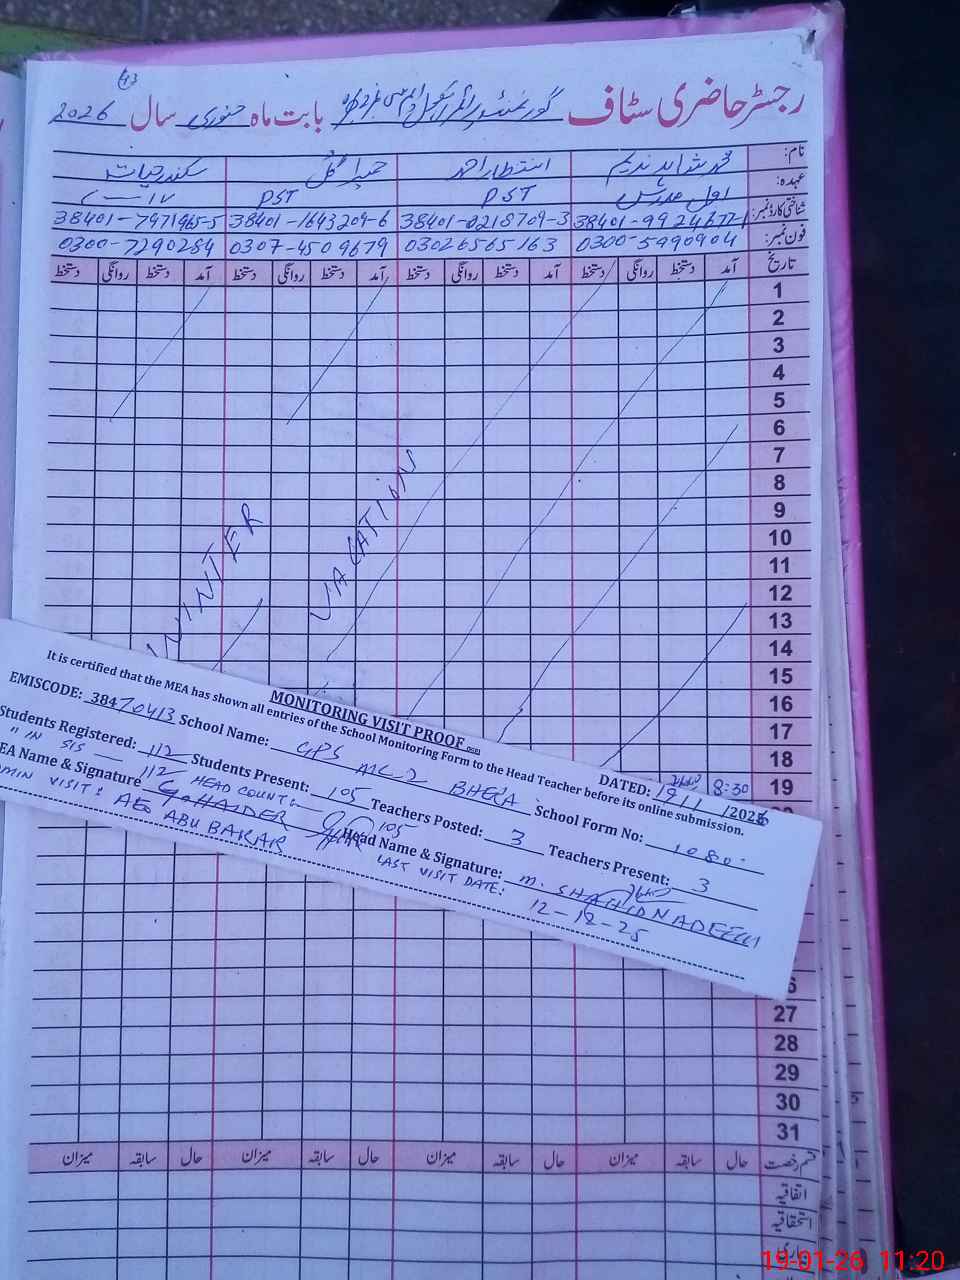 43
رجسٹر حاضری سٹاف گورنمنٹ پرائمری سکول ایم سی نمبر 2 بھیرہ بابت ماہ جنوری سال 2026
نام: محمد شاہد ندیم انتظار احمد حمیرا گل سکندر حیات
عہدہ: اول مدرس PST PST
شناختی کارڈ نمبر: 38401-0218709-3 38401-1643209-6 38401-7971965-5
فون نمبر: 0300-5990904 03026565163 0307-4509679 0300-7290284
تاریخ آمد دستخط روانگی دستخط آمد دستخط روانگی دستخط آمد دستخط روانگی دستخط آمد دستخط روانگی دستخط
1
2
3
4
5
6
7
8
9
10
11
12
13
14
15
16
17
18
19
WINTER VACATIONS
MONITORING VISIT PROOF
It is certified that the MEA has shown all entries of the School Monitoring Form to the Head Teacher before its online submission.
DATED: 8:30
EMISCODE: 38470413 School Name: GPS MC-2 BHERA School Form No: 1080
Students Registered: 112 Students Present: 105 Teachers Posted: 3 Teachers Present: 3
" IN SIS 112 HEAD COUNT: 105
EA Name & Signature HAIDER Head Name & Signature: M. SHAHID NADEEM
ADMIN VISIT: AEO ABU BAKAR LAST VISIT DATE: 12-12-25
27
28
29
30
31
قسم رخصت حال سابقہ میزان حال سابقہ میزان حال سابقہ میزان حال سابقہ میزان
اتفاقیہ
استحقاقیہ
19-01-26 11:20